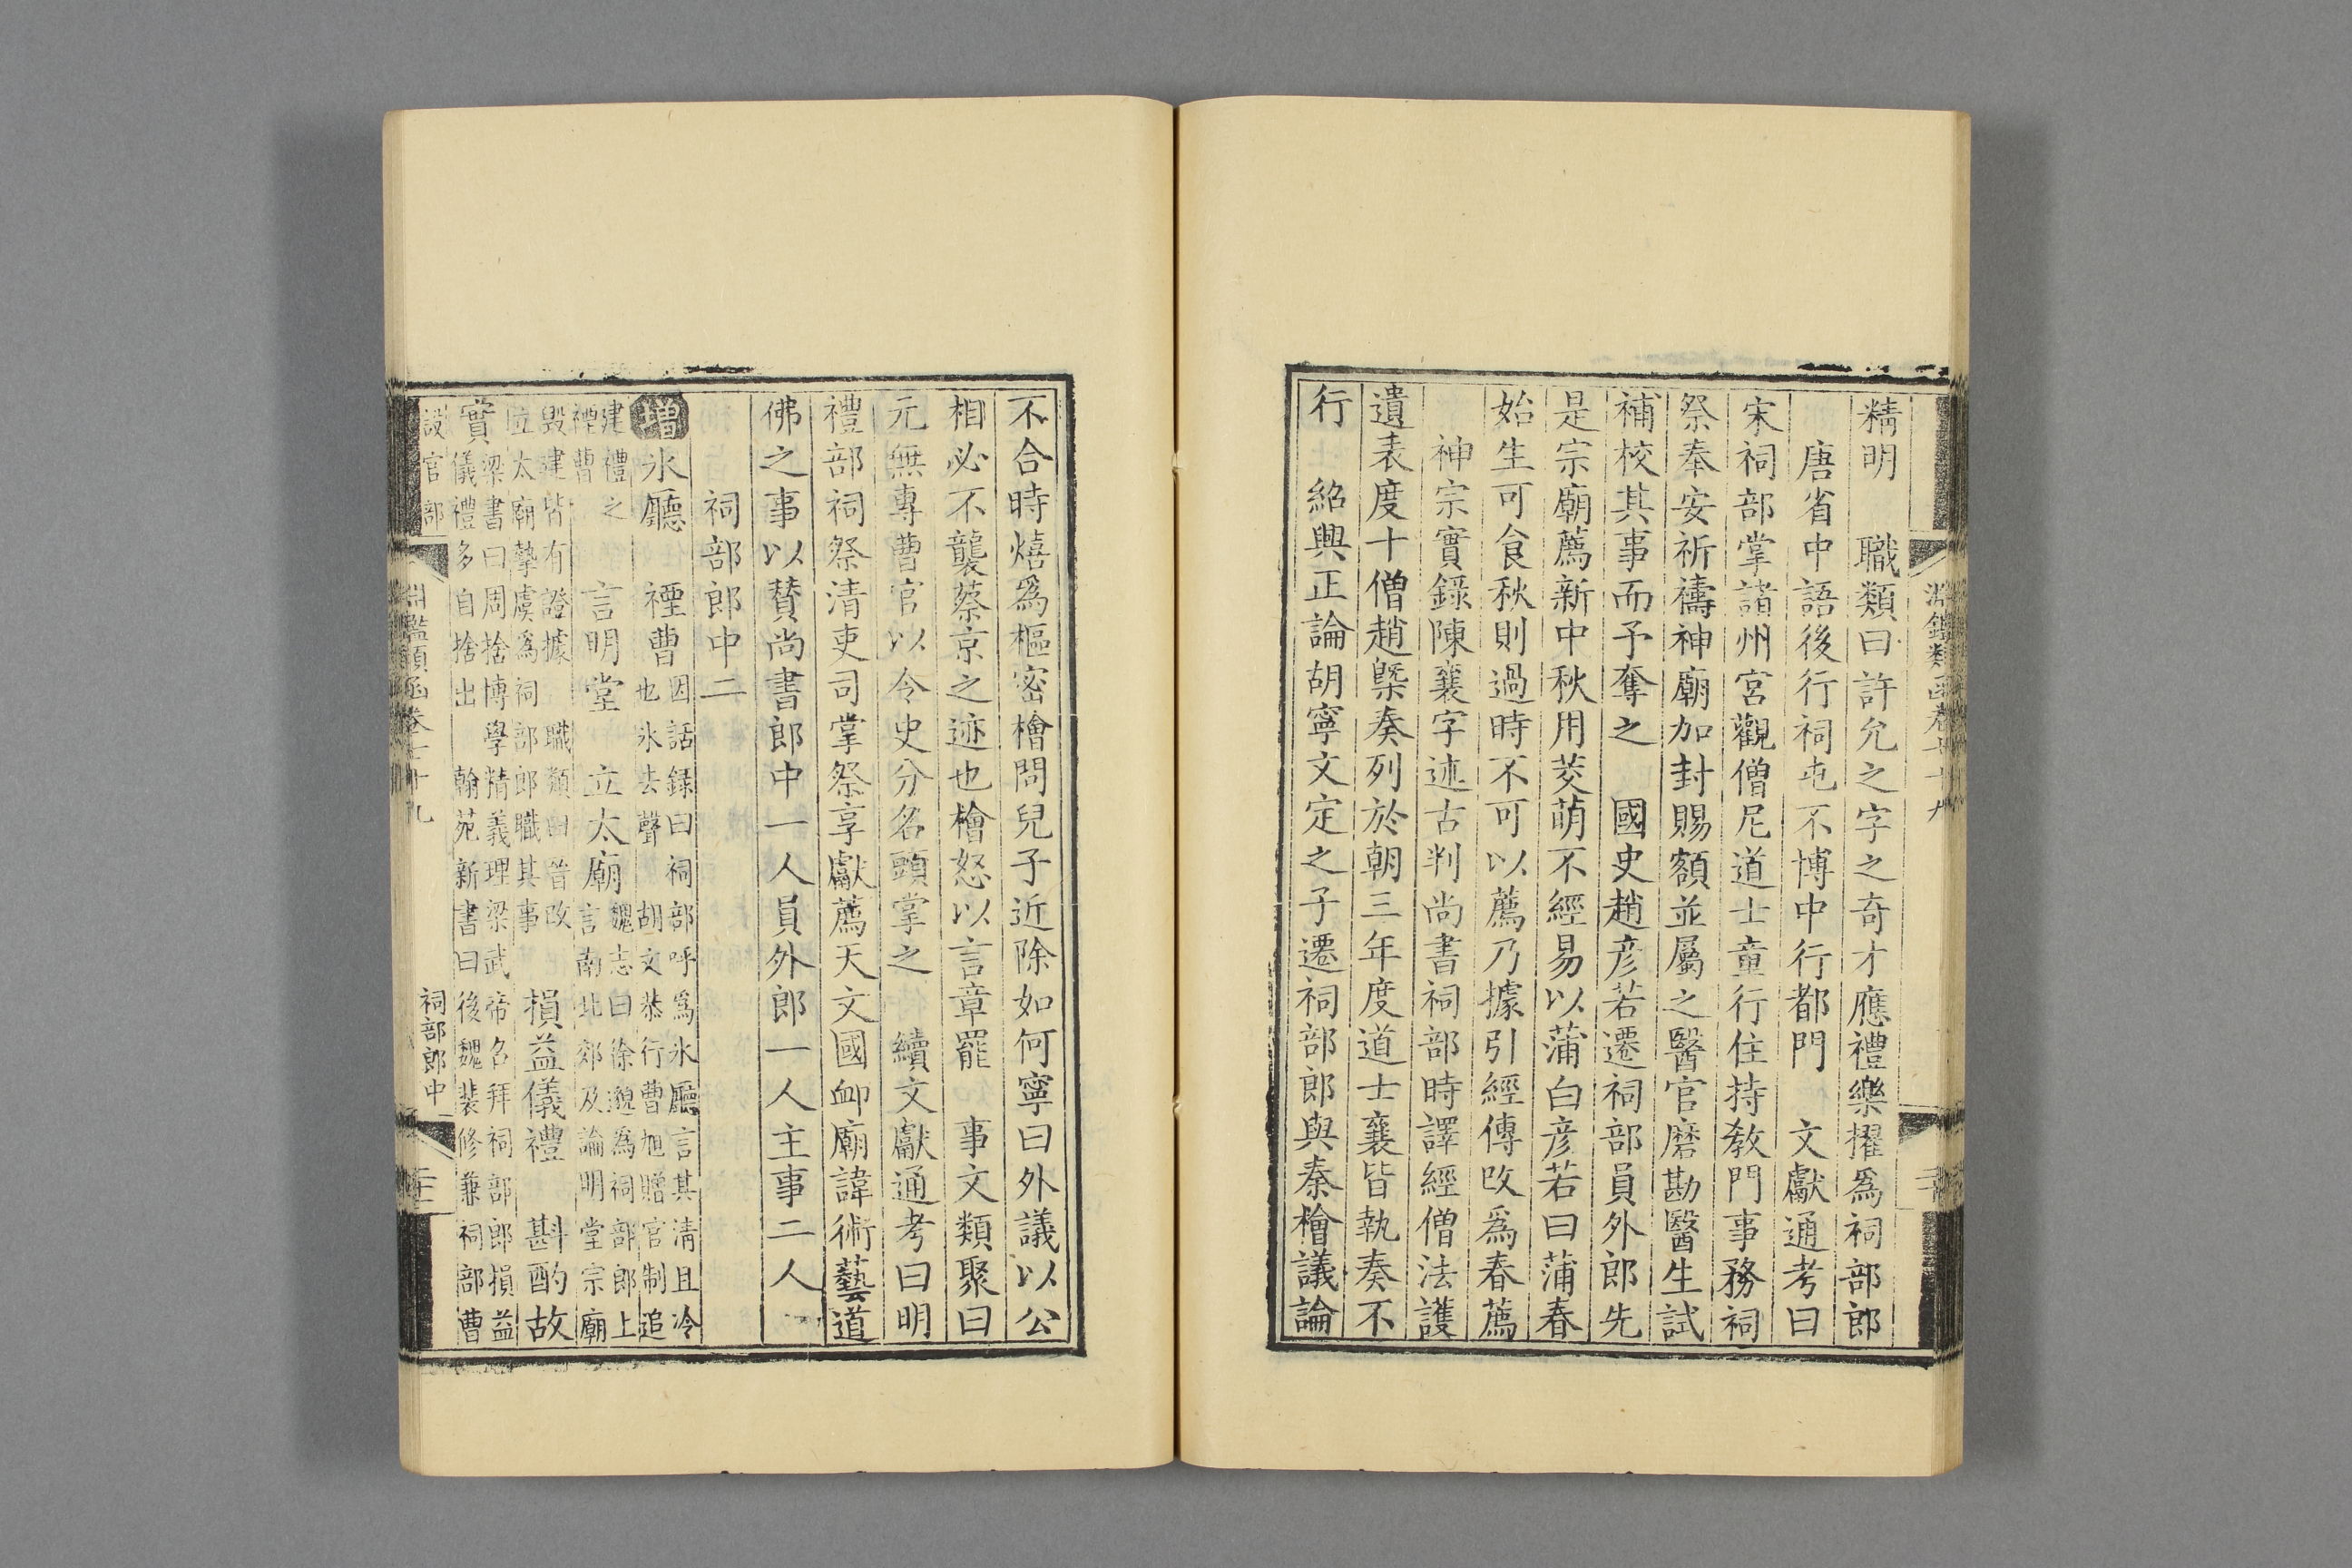 精明　職類曰許允之字之奇才應禮樂擢爲祠部郎
唐省中語後行祠屯不博中行都門　文獻通考曰
宋祠部掌諸州宮觀僧尼道士童行住持教門事務祠
祭奉安祈禱神廟加封賜額並屬之醫官磨勘醫生試
補校其事而予奪之　國史趙彦若遷祠部員外郎先
是宗廟薦新中秋用茭萌不經易以蒲白彦若曰蒲春
始生可食秋則過時不可以薦乃據引經傳改爲春薦
神宗實錄陳襄字述古判尚書祠部時譯經僧法護
遺表度十僧趙槩奏列於朝三年度道士襄皆執奏不
行　紹興正論胡寧文定之子遷祠部郎與秦檜議論
不合時熺爲樞密檜問兒子近除如何寧曰外議以公
相必不襲蔡京之迹也檜怒以言章罷　事文類聚曰
元無專曹官以令史分名頭掌之　續文獻通考曰明
禮部祠祭清吏司掌祭享獻薦天文國卹廟諱術藝道
佛之事以贊尚書郎中一人員外郎一人主事二人
祠部郎中二
增冰廳　禋曹因話録曰祠部呼爲冰廳言其清且冷
也冰去聲　胡文恭行曹旭贈官制追
建禮之
禋曹　言明堂　立太廟魏志曰徐邈爲祠部郎上
言南北郊及論明堂宗廟
毀建皆有證據　職類曰晉改
立太廟摯虞爲祠部郎職其事　損益儀禮　斟酌故
實梁書曰周捨博學精義理梁武帝召拜祠部郎損益
儀禮多自捨出　翰苑新書曰後魏裴修兼祠部曹
淵鑑類函卷七十九
祠部郎中